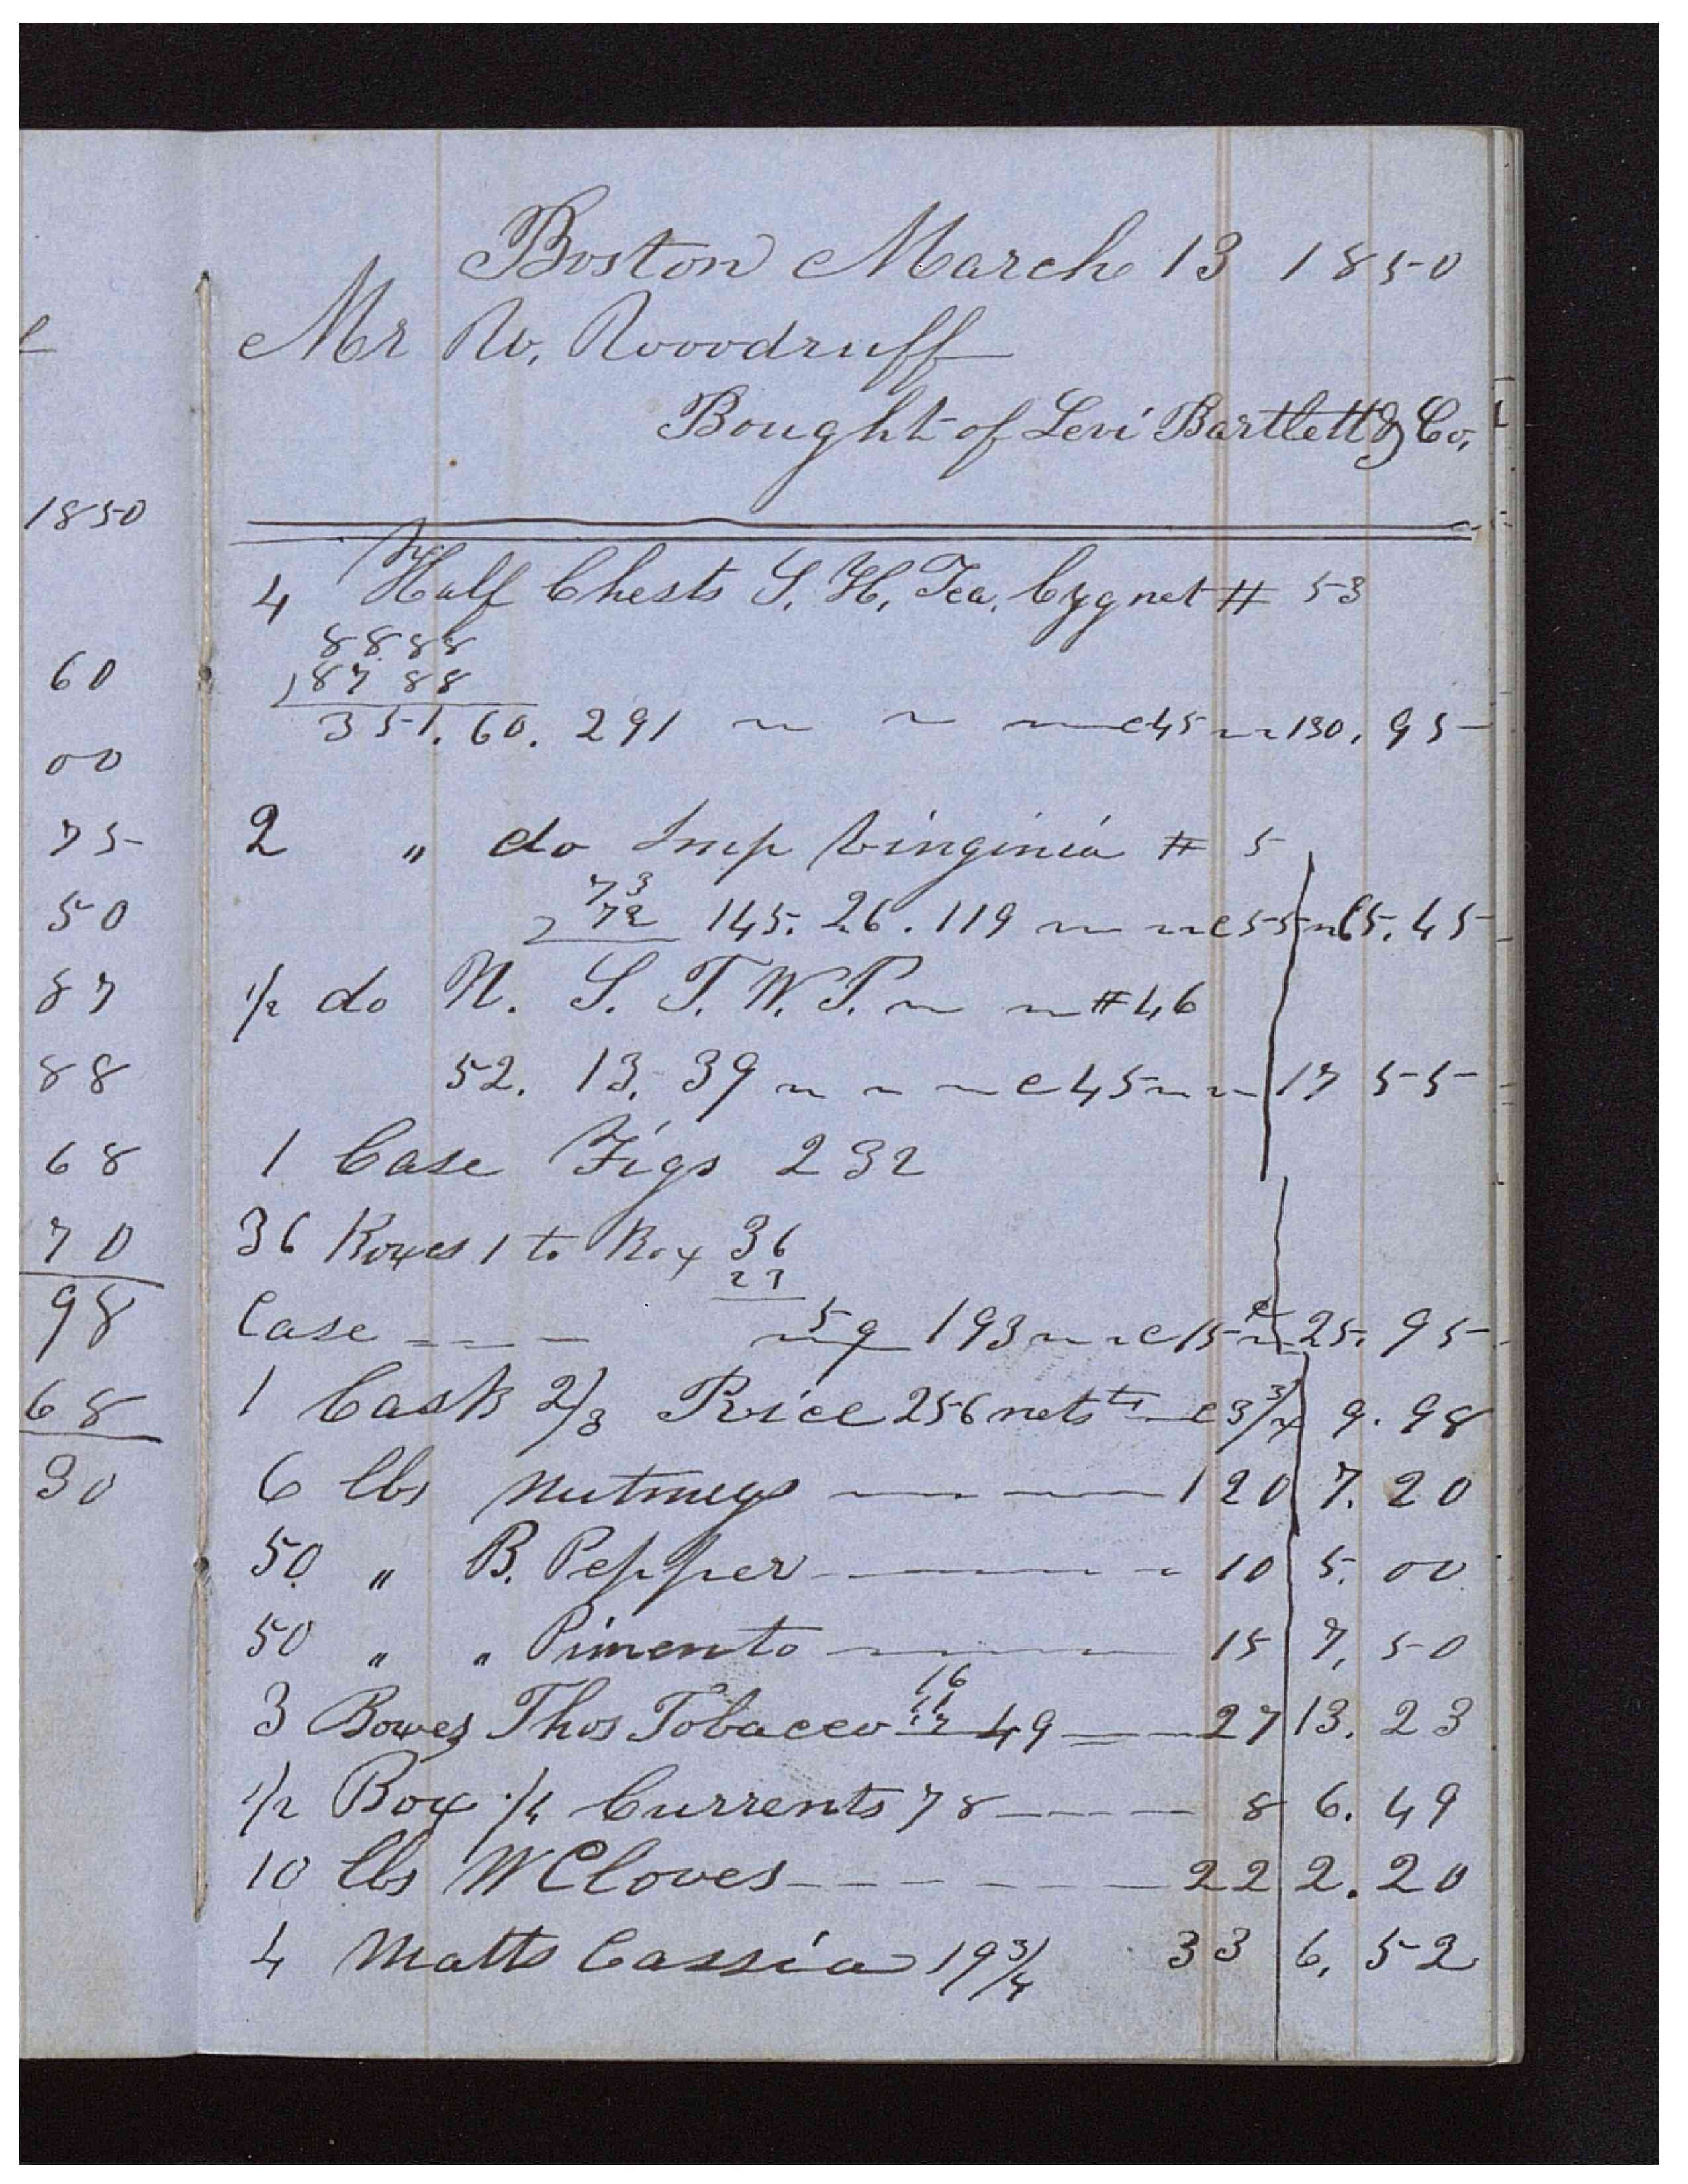 Boston March 13 1850
Mr W. Woodruff
Bought of Levi Bartlett & Co.
4 Half Chests S. H. Tea. Cygnet # 53
88 88
87 88
351. 60. 291 c45 130.95
2 " do Imp Vinginia # 5
73
72 145. 26. 119 c55 65.45
1/2 do N. S. T. W. P. #46
52. 13. 39 c45 17 55
1 Case Figs 232
36 Boxes 1 to Box 36
23
Case 59 193 c15 25.95
1 Cask 2/3 Rice 256 nets c3 3/4 9.98
6 lbs nutmegs 120 7.20
50 " B. Pepper 10 5.00
50 " " Pimento 15 7,50
16
3 Boxes Thos Tobacco 17 49 27 13.23
1/2 Box 1/4 Currents 78 8 6.49
10 lbs W Cloves 22 2.20
4 Matts Cassia 19 3/4 33 6,52
1850
60
00
75
50
87
88
68
70
98
68
30